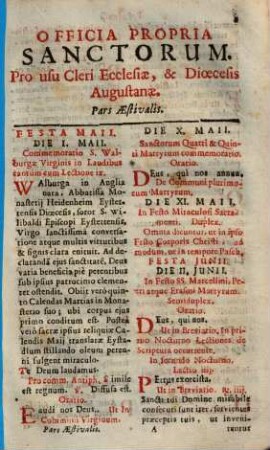 OFFICIA PROPRIA
SANCTORUM.
Pro usu Cleri Ecclesiæ, & Diœcesis
Augustanæ.
Pars Æstivalis.
FESTA MAII.
DIE I. MAII.
Commemoratio S. Wal-
burgæ Virginis in Laudibus
tantum cum Lectione ix.
Walburga in Anglia
nata, Abbatissa Mo-
nasterij Heidenheim Eystet-
tensis Diœcesis, soror S. Wi-
libaldi Episcopi Eystettensis,
Virgo sanctissima conversa-
tione atque multis virtutibus
& signis clara enituit. Ad de-
clarandã ejus sanctitatẽ, Deus
varia beneficia piè petentibus
sub ipsius patrocinio clemen-
ter ostendit. Obiit verò quin-
to Calendas Martias in Mona-
sterio suo; ubi corpus ejus
primò conditum est. Posteà
verò sacræ ipsius reliquiæ Ca-
lendis Maij translatæ Eysta-
dium stillando oleum peren-
ni fulgent miraculo.
Te Deum laudamus.
Pro comm. Antiph. Simile
est regnum. ℣. Diffusa est.
Oratio.
Exaudi nos Deus, Ut In
Communi Virginum.
Pars Æstivalis.
DIE X. MAII.
Sanctorum Quarti & Quin-
ti Martyrum commemoratio.
Oratio.
Deus, qui nos annua,
De Communi plurimo-
rum Martyrum.
DIE XI. MAII.
In Festo Miraculosi Sacra-
menti. Duplex.
Omnia dicuntur, ut in ipso
Festo Corporis Christi, ad
modum, ut in tempore Pasch.
FESTA JUNII.
DIE II. JUNII.
In Festo SS. Marcellini, Pe-
tri atque Erasmi Martyrum.
Semiduplex.
Oratio.
Deus, qui nos,
Ut in Breviario. In pri-
mo Nocturno Lectiones de
Scriptura occurrente.
In secundo Nocturno,
Lectio iiij.
Petrus exorcista,
Ut in Breviario.
A